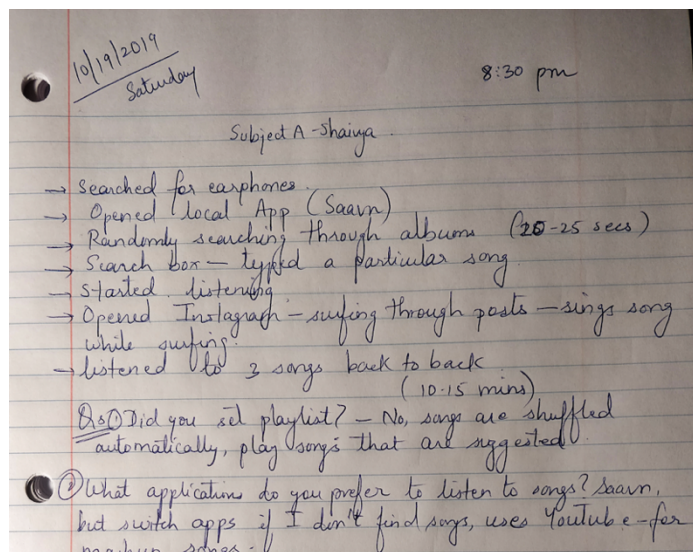 10/19/2019
Saturday
8:30 pm
Subject A - Shaivya.
→ Searched for earphones.
→ Opened local App (Saavn)
→ Randomly searching through albums (20-25 secs)
→ Search box — typed a particular song.
→ Started listening.
→ Opened Instagram — surfing through posts — sings song
while surfing.
→ listened to 3 songs back to back
(10-15 mins)
Qs ① Did you set playlist? — No, songs are shuffled
automatically, play songs that are suggested.
② What applications do you prefer to listen to songs? Saavn,
but switch apps if I don't find songs, uses YouTube - for
songs.